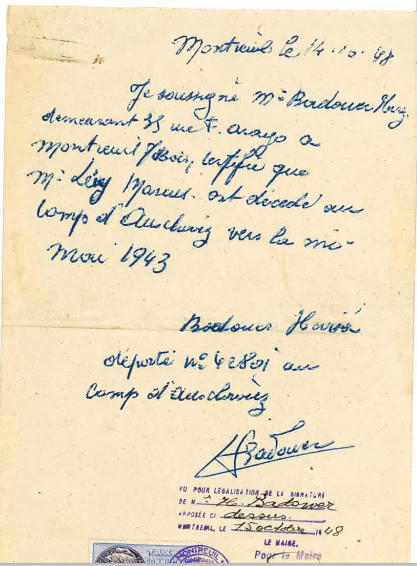 Montreuil le 14-10-48
Je soussigné Mr Badower Herz
demeurant 33 rue F. arago a
Montreuil s/Bois, certifie que
Mr Lévy Marcus est décédé au
Camp d'Auschwitz vers la mi-
Mai 1943
Badower
déporté n° 42801 au
Camp d'Auschwitz
HBadower
VU POUR LEGALISATION DE LA SIGNATURE
DE M. H. Badower
APPOSÉE CI dessus.
MONTREUIL, LE 15 octobre 1948
LE MAIRE,
Pour le Maire
MONTREUIL